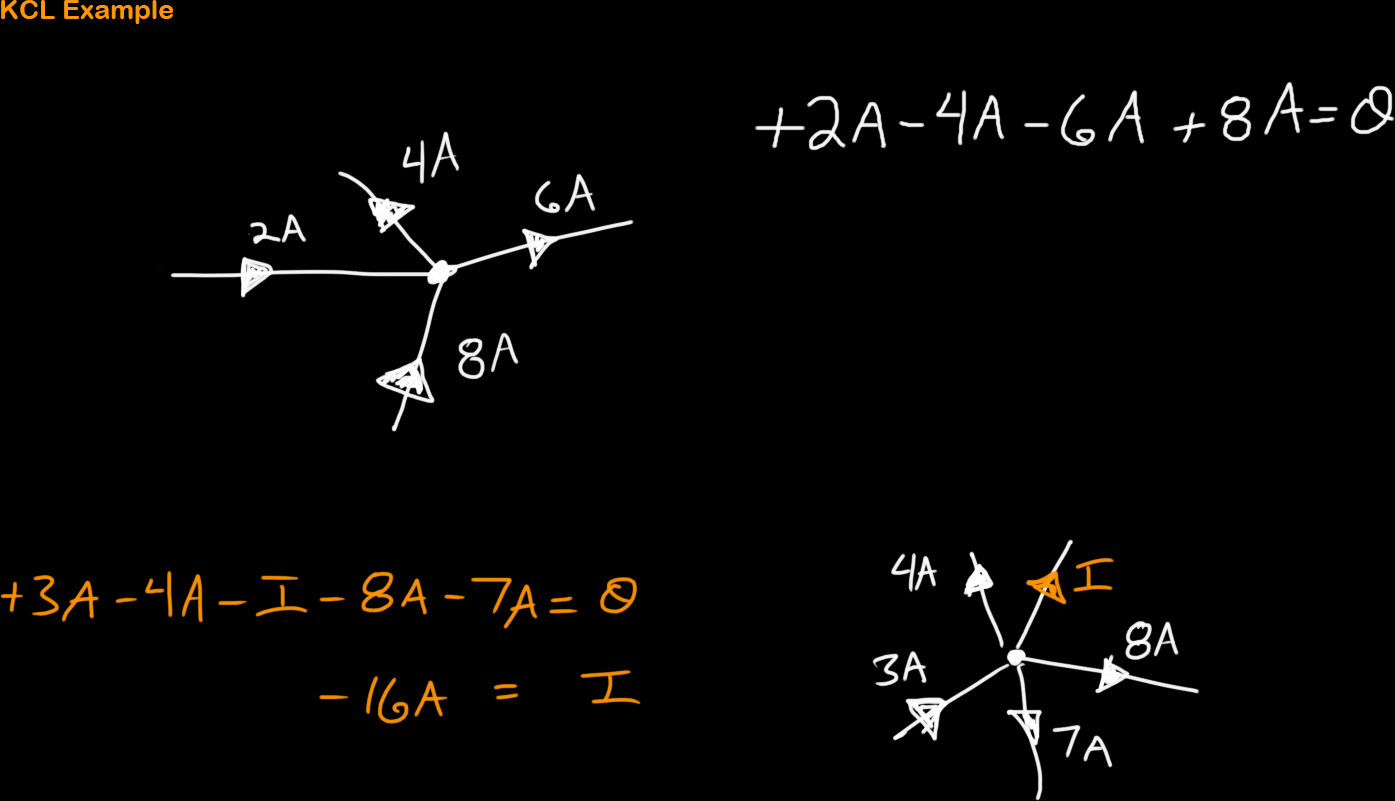 KCL Example
+2A-4A-6A+8A=0
4A
6A
2A
8A
+3A-4A-I-8A-7A=0
-16A = I
4A
I
8A
3A
7A